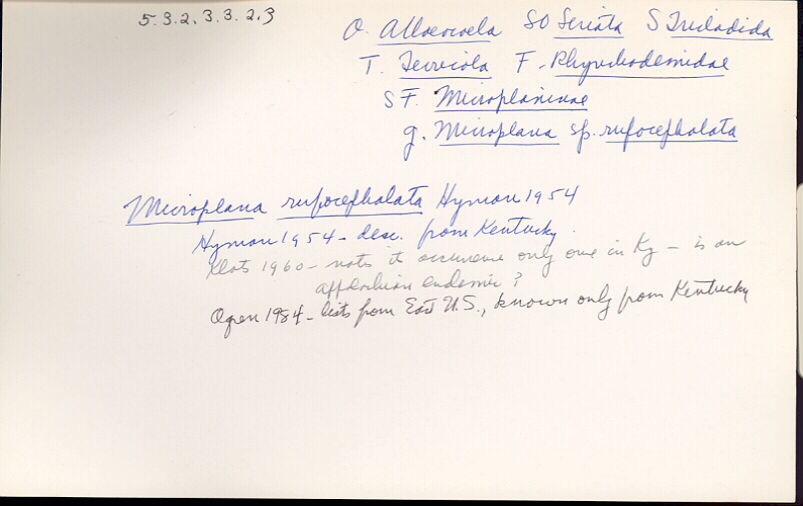 5.3.2.3.3.2.3
O. Alloeocoela SO Seriata S Tricladida
T. Terricola F. Rhynchodemidae
SF. Microplaninae
g. Microplana sp. rufocephalata
Microplana rufocephalata Hyman 1954
Hyman 1954 - desc. from Kentucky
Klots 1960 - notes it occurence only one in Ky - is an
appalachian endemic?
Ogren 1984 - lists from East U.S., known only from Kentucky